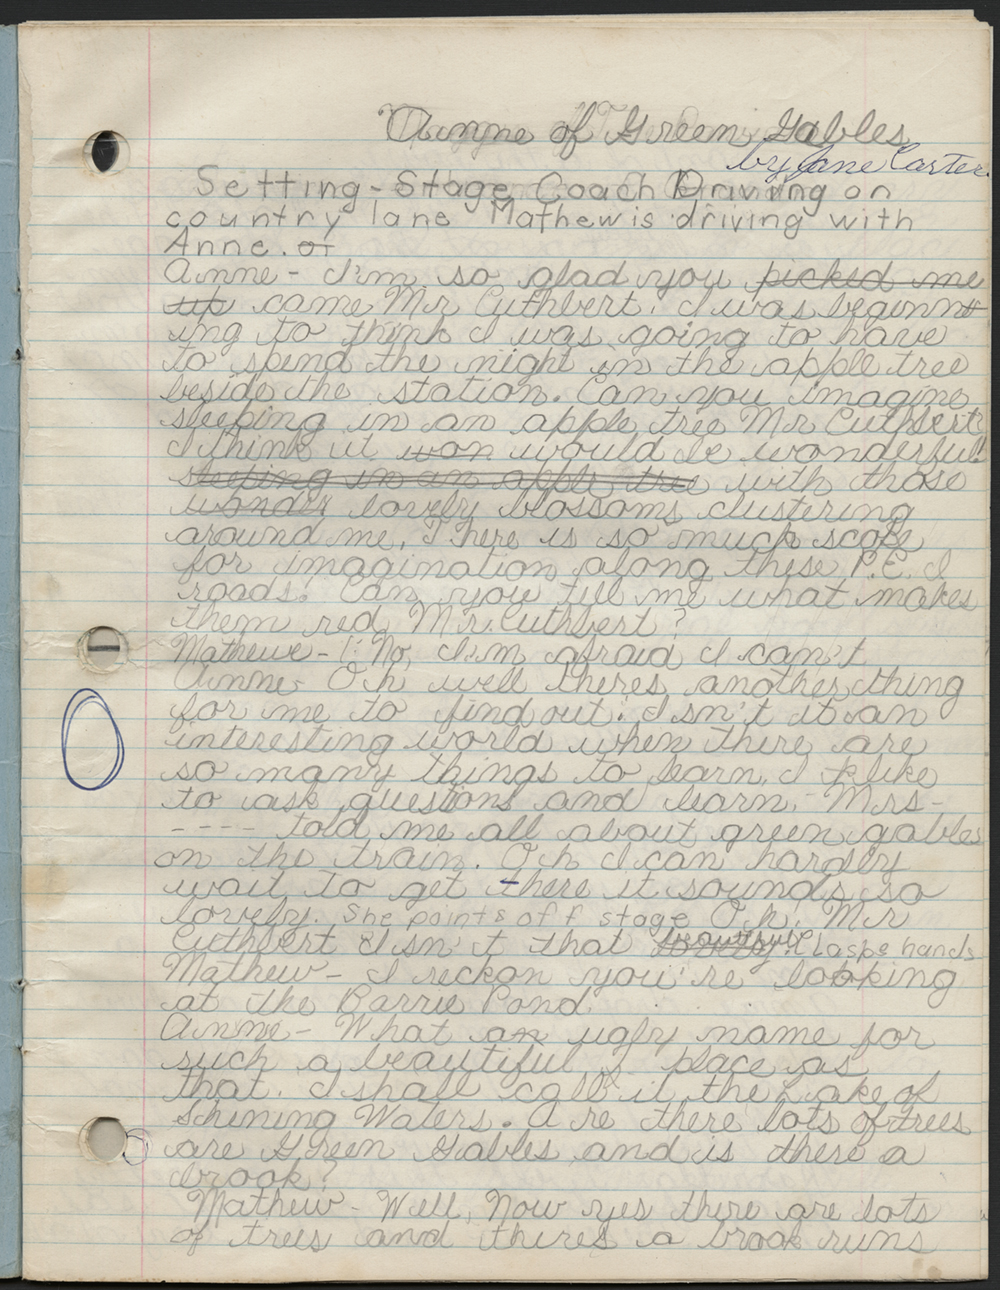 Anne of Green Gables
by Jane Carter.
Setting - Stage Coach Driving on
country lane Mathew is driving with
Anne. or
Anne - I'm so glad you picked me
up came Mr Cuthbert. I was beginn
ing to think I was going to have
to spend the night in the apple tree
beside the station. Can you imagine
sleeping in an apple tree Mr Cuthbert
I think it won would be wonderful!
sleeping in an apple tree with those
wondry lovely blossoms clustering
around me, There is so much scope
for imagination along these P.E. I
roads. Can you tell me what makes
them red, Mr. Cuthbert?
Mathew - No, I'm afraid I can't
Anne - Oh well theres another thing
for me to find out. Isn't it an
interesting world when there are
so many things to learn. I like
to ask questions and learn, - Mrs -
- - - - told me all about green gables
on the train. Oh I can hardly
wait to get there it sounds so
lovely. She points off stage Oh, Mr
Cuthbert Isn't that beautiful Claspe hands
Mathew - I reckon you're looking
at the Barrie Pond
Anne - What an ugly name for
such a beautiful place as
that. I shall call it the Lake of
Schining Waters. Are there lots of trees
are Green Gables and is there a
brook?
Mathew - Well, Now yes there are lots
of trees and theres a brook runs